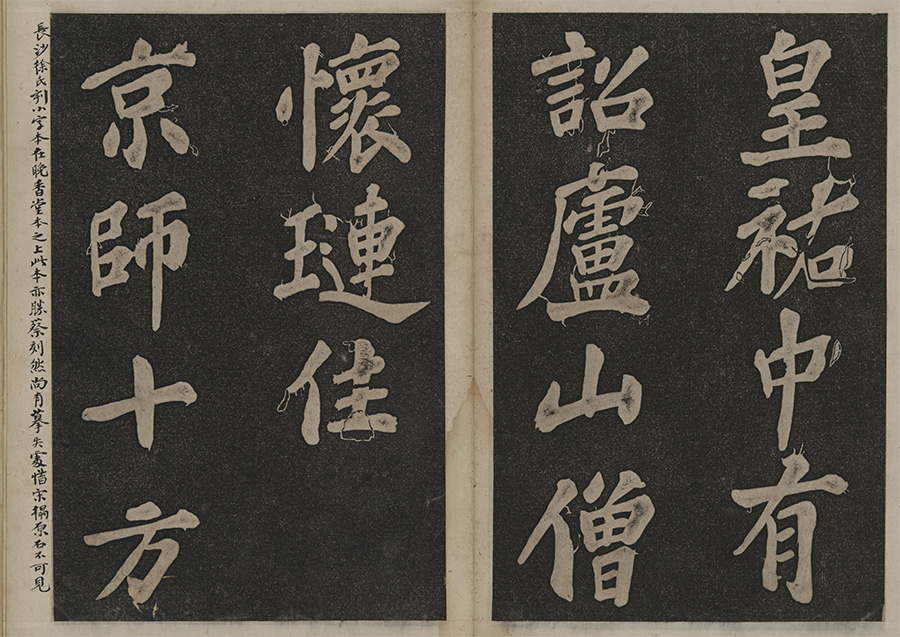 皇祐中有
詔廬山僧
懷璉住
京師十方
長沙徐氏刻小字本在晚香堂本之上此本亦勝蔡刻然尚有摹失處惜宋搨原石不可見